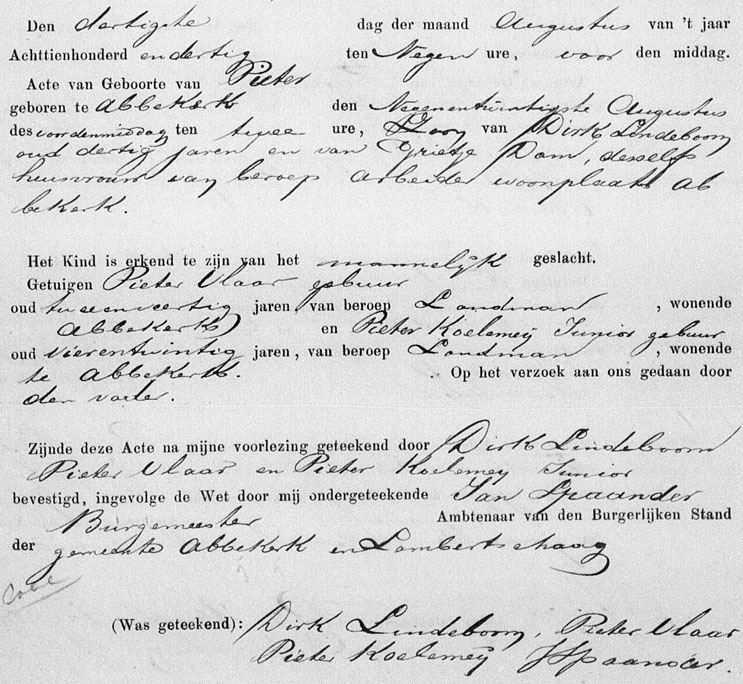 Den dertigste dag der maand Augustus van 't jaar
Achttienhonderd en dertig ten Negen ure, voor den middag.
Acte van Geboorte van Pieter
geboren te Abbekerk den Negenentwintigste Augustus
des voordenmiddag ten twee ure, Zoon van Dirk Lindeboom
oud dertig jaren en van Grietje Dam, desselfs
huisvrouw van beroep arbeider woonplaats Ab
bekerk.
Het Kind is erkend te zijn van het mannelijk geslacht.
Getuigen Pieter Vlaar gebuur
oud tweeenveertig jaren, van beroep Landman, wonende
Abbekerk en Pieter Koelemeij Junior gebuur
oud vierentwintig jaren, van beroep Landman, wonende
te Abbekerk. Op het verzoek aan ons gedaan door
den vader.
Zijnde deze Acte na mijne voorlezing geteekend door Dirk Lindeboom
Pieter Vlaar en Pieter Koelemeij Junior
bevestigd, ingevolge de Wet door mij ondergeteekende Jan Spaander
Burgemeester Ambtenaar van den Burgerlijken Stand
der gemeente Abbekerk en Lambertschaag
(Was geteekend): Dirk Lindeboom, Pieter Vlaar
Pieter Koelemeij JSpaander.